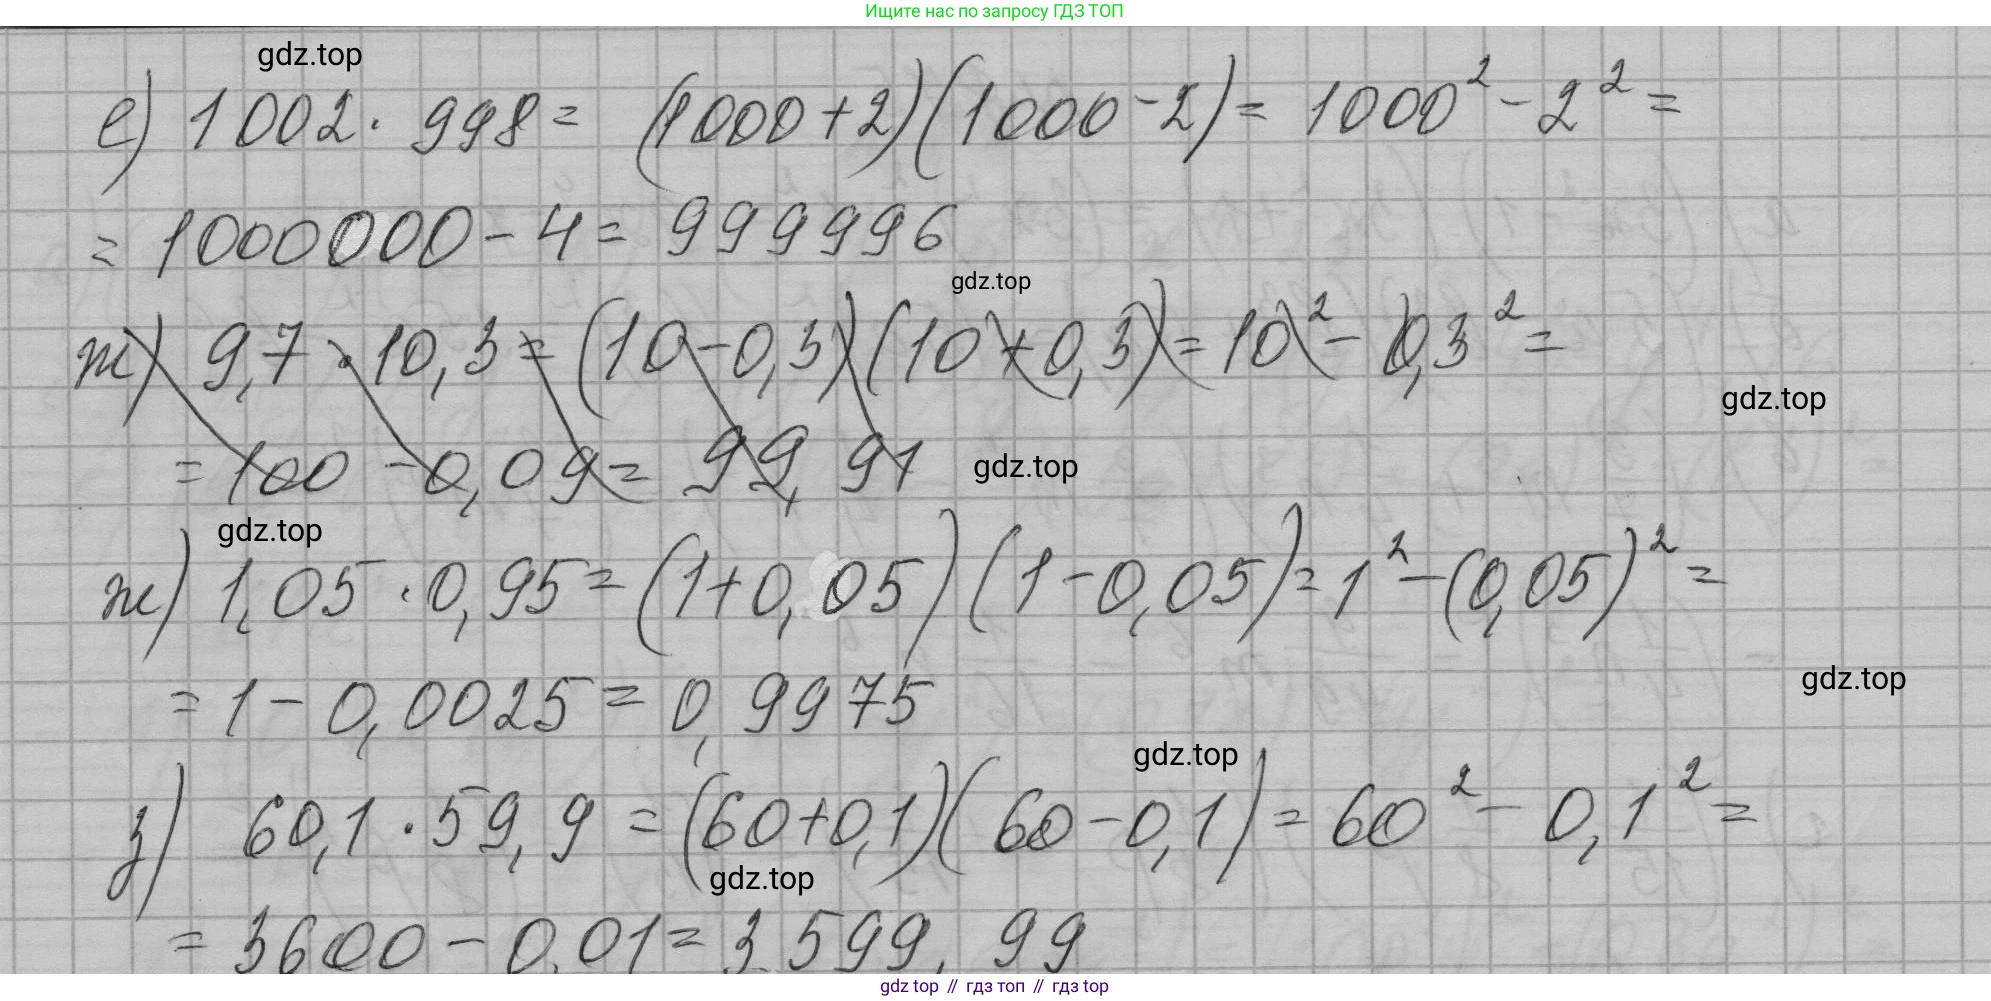 Ищите нас по запросу ГДЗ ТОП
gdz.top
е) 1002 · 998 = (1000 + 2)(1000 - 2) = 1000² - 2² =
= 1000000 - 4 = 999996
gdz.top
ж) 9,7 · 10,3 = (10 - 0,3)(10 + 0,3) = 10² - 0,3² =
gdz.top
= 100 - 0,09 = 99,91
gdz.top
gdz.top
ж) 1,05 · 0,95 = (1 + 0,05)(1 - 0,05) = 1² - (0,05)² =
= 1 - 0,0025 = 0,9975
gdz.top
gdz.top
з) 60,1 · 59,9 = (60 + 0,1)(60 - 0,1) = 60² - 0,1² =
gdz.top
= 3600 - 0,01 = 3599,99
gdz top // гдз топ // gdz top